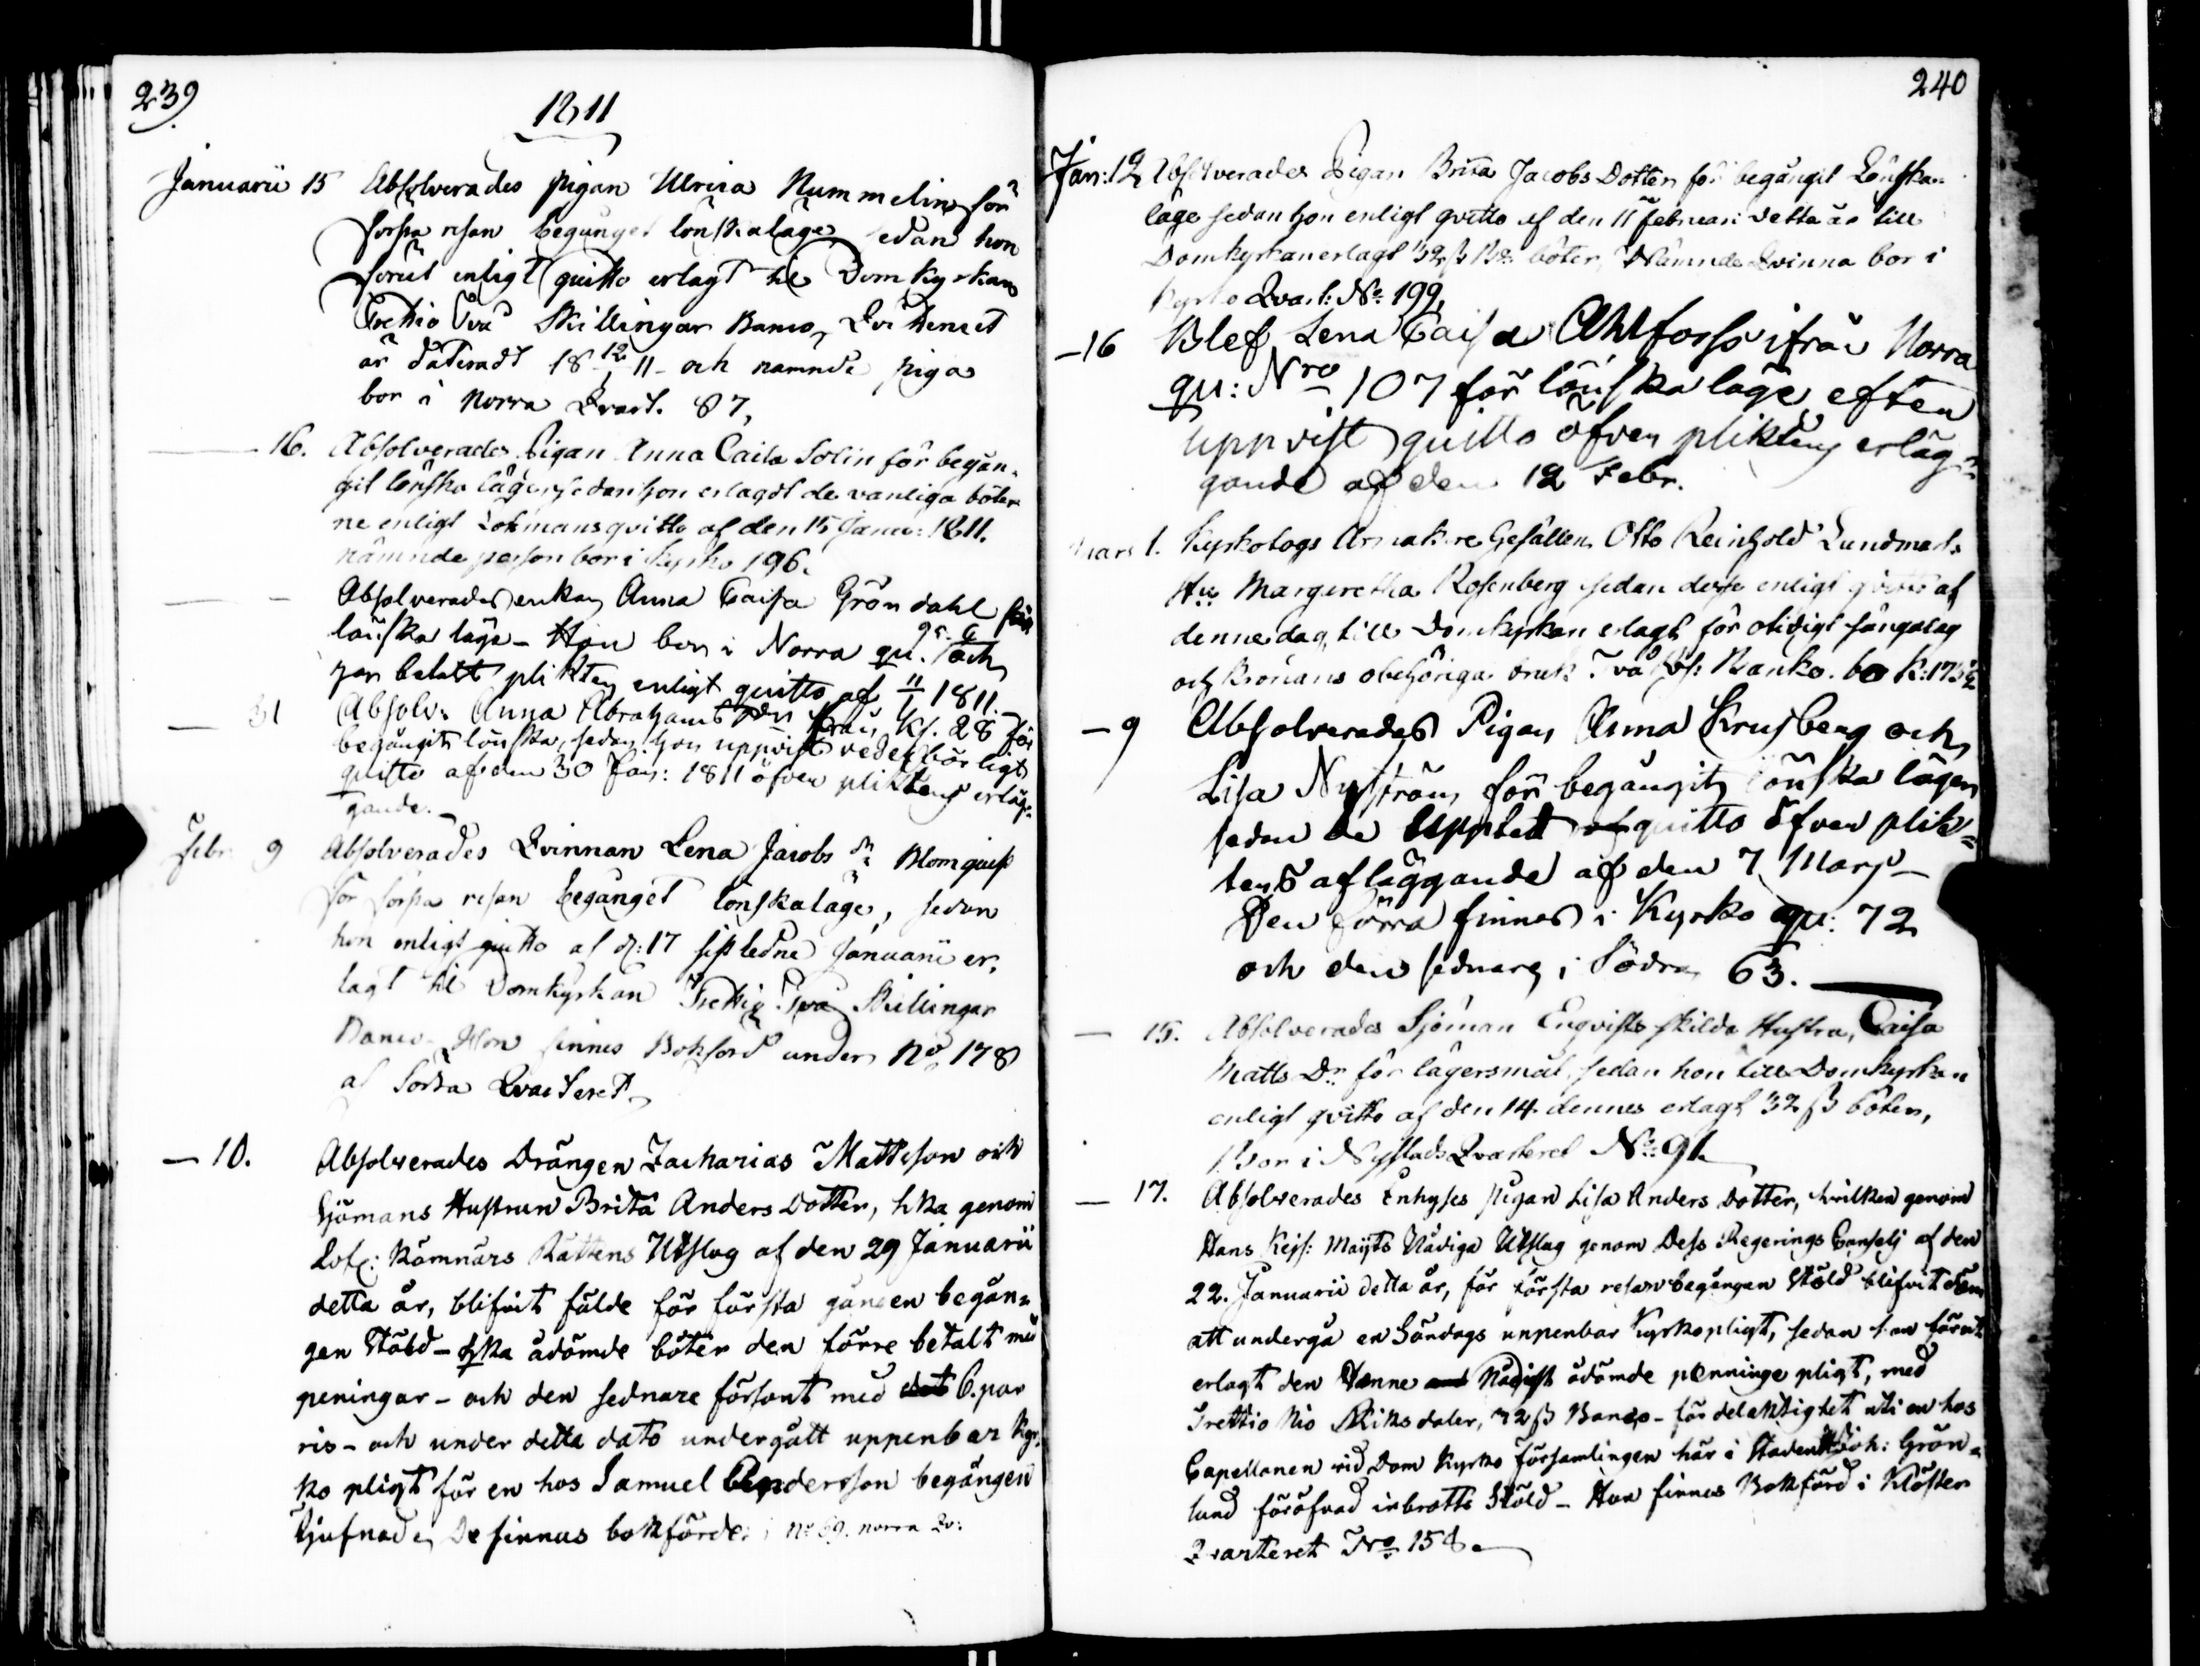 239
1811
Januarii 15 Absolverades pigan Ulrica Nummelin för
första resan begånget lönskaläge, sedan hon
förut enligt quitto erlagt til Domkyrkan
Trettio Två Skillingar Banco, Qvittencet
är dateradt 18 12/1 11 - och nämnde piga
bor i Norra Qvart. 87,
— 16. Absolverades Pigan Anna Caisa Solin för begån-
git lönska läge, sedan hon erlagdt de vanliga böter-
ne enligt qvitto af den 15 Janu: 1811.
nämnde person bor i Kyrko 196.
— — Absolverades enkan Anna Caisa Gröndahl för
lönska läge - Hon bor i Norra qu. och
har betalt plikten enligt quitto af 11/1 1811.
— 31 Absolv: Anna Abrahams dr från Ky. 28 för
begångit lönska, sedan hon uppvist vederbörligt
quitto af den 30 Jan: 1811 öfver pliktens erläg-
gande.
Febr 9 Absolverades Qvinnan Lena Jacobs dr Blomquist
för första resan begånget lönskaläge, sedan
hon enligt quitto af d: 17 sistledne Januarii er-
lagt til Domkyrkan Trettio Två Skillingar
Banco. Hon finnes Bokförd under No 178
af Södra Qvarteret.
— 10. Absolverades Drängen Zacharias Mattsson och
Sjömans Hustrun Brita Anders Dotter, hka genom
Lofl: Kämnärs Rättens Utslag af den 29 Januarii
detta år, blifvit fälde för första gången begån-
gen Stöld - hka ådömde böter den förre betalt med
peningar - och den sednare försont med 6. par
ris - och under detta dato undergått uppenbar Kyr-
ko pligt för en hos Samuel Andersson begången
tjufnad. De finnas bokförde i No 69. norra Qv:
240
Jan: 12 Absolverades Pigan Brita Jacobs Dotter för begångit Lönska-
läge sedan hon enligt qvitto af den 11 februari detta år till
Domkyrkan erlagt 32 ß Bco böter, Nämnde Qvinna bor i
Kyrko Qvart: No 199.
— 16 Blef Lena Caisa Ahlforss ifrån Norra
qu: Nro 107 för lönska läge efter
uppvist quitto öfver pliktens erläg-
gande af den 12 Febr.
Mars 1. Kyrkotogs Gesällen Otto Reinhold Lundmarks
Hu Margeretha Rosenberg sedan desse enligt qvitto af
denne dag, till Domkyrkan erlagt för otidigt sängalag
och Kronans obehöriga bruk Två Banko. bo K:
— 9 Absolverades Pigan Anna Krusberg och
Lisa Nyström för begångit lönska läger
sedan de uppvist quitto öfver plik-
tens afläggande af den 7 Mars —
Den förra finnes i Kyrko qu: 72
och den sednare i Södra 63. —
— 15. Absolverades Sjöman Enqvists skilda Hustru, Caisa
Matts Dr för lägersmål, sedan hon till Domkyrkan
enligt qvitto af den 14 dennes erlagt 32 ß böter,
Bor i Nystads Qvarteret No 91.
— 17. Absolverades Enhyses pigan Lisa Anders Dotter, hvilken genom
Hans Kejs: Majjts Nådiga Utslag genom Dess Regerings Conselj af den
22. Januarii detta år, för första resan begången Stöld blifvit dömd
att undergå en Söndags uppenbar Kyrkopligt, sedan hon förut
erlagt den Henne Nådigst ådömde penninge pligt, med
Trettio Nio Riksdaler, 32 ß Banco - för delaktighet uti en hos
Capellanen vid Dom Kyrko Församlingen här i Staden Joh: Grön-
lund föröfvad inbrotts Stöld - Hon finnes Bokförd i Kloster
Qvarteret Nro 158.